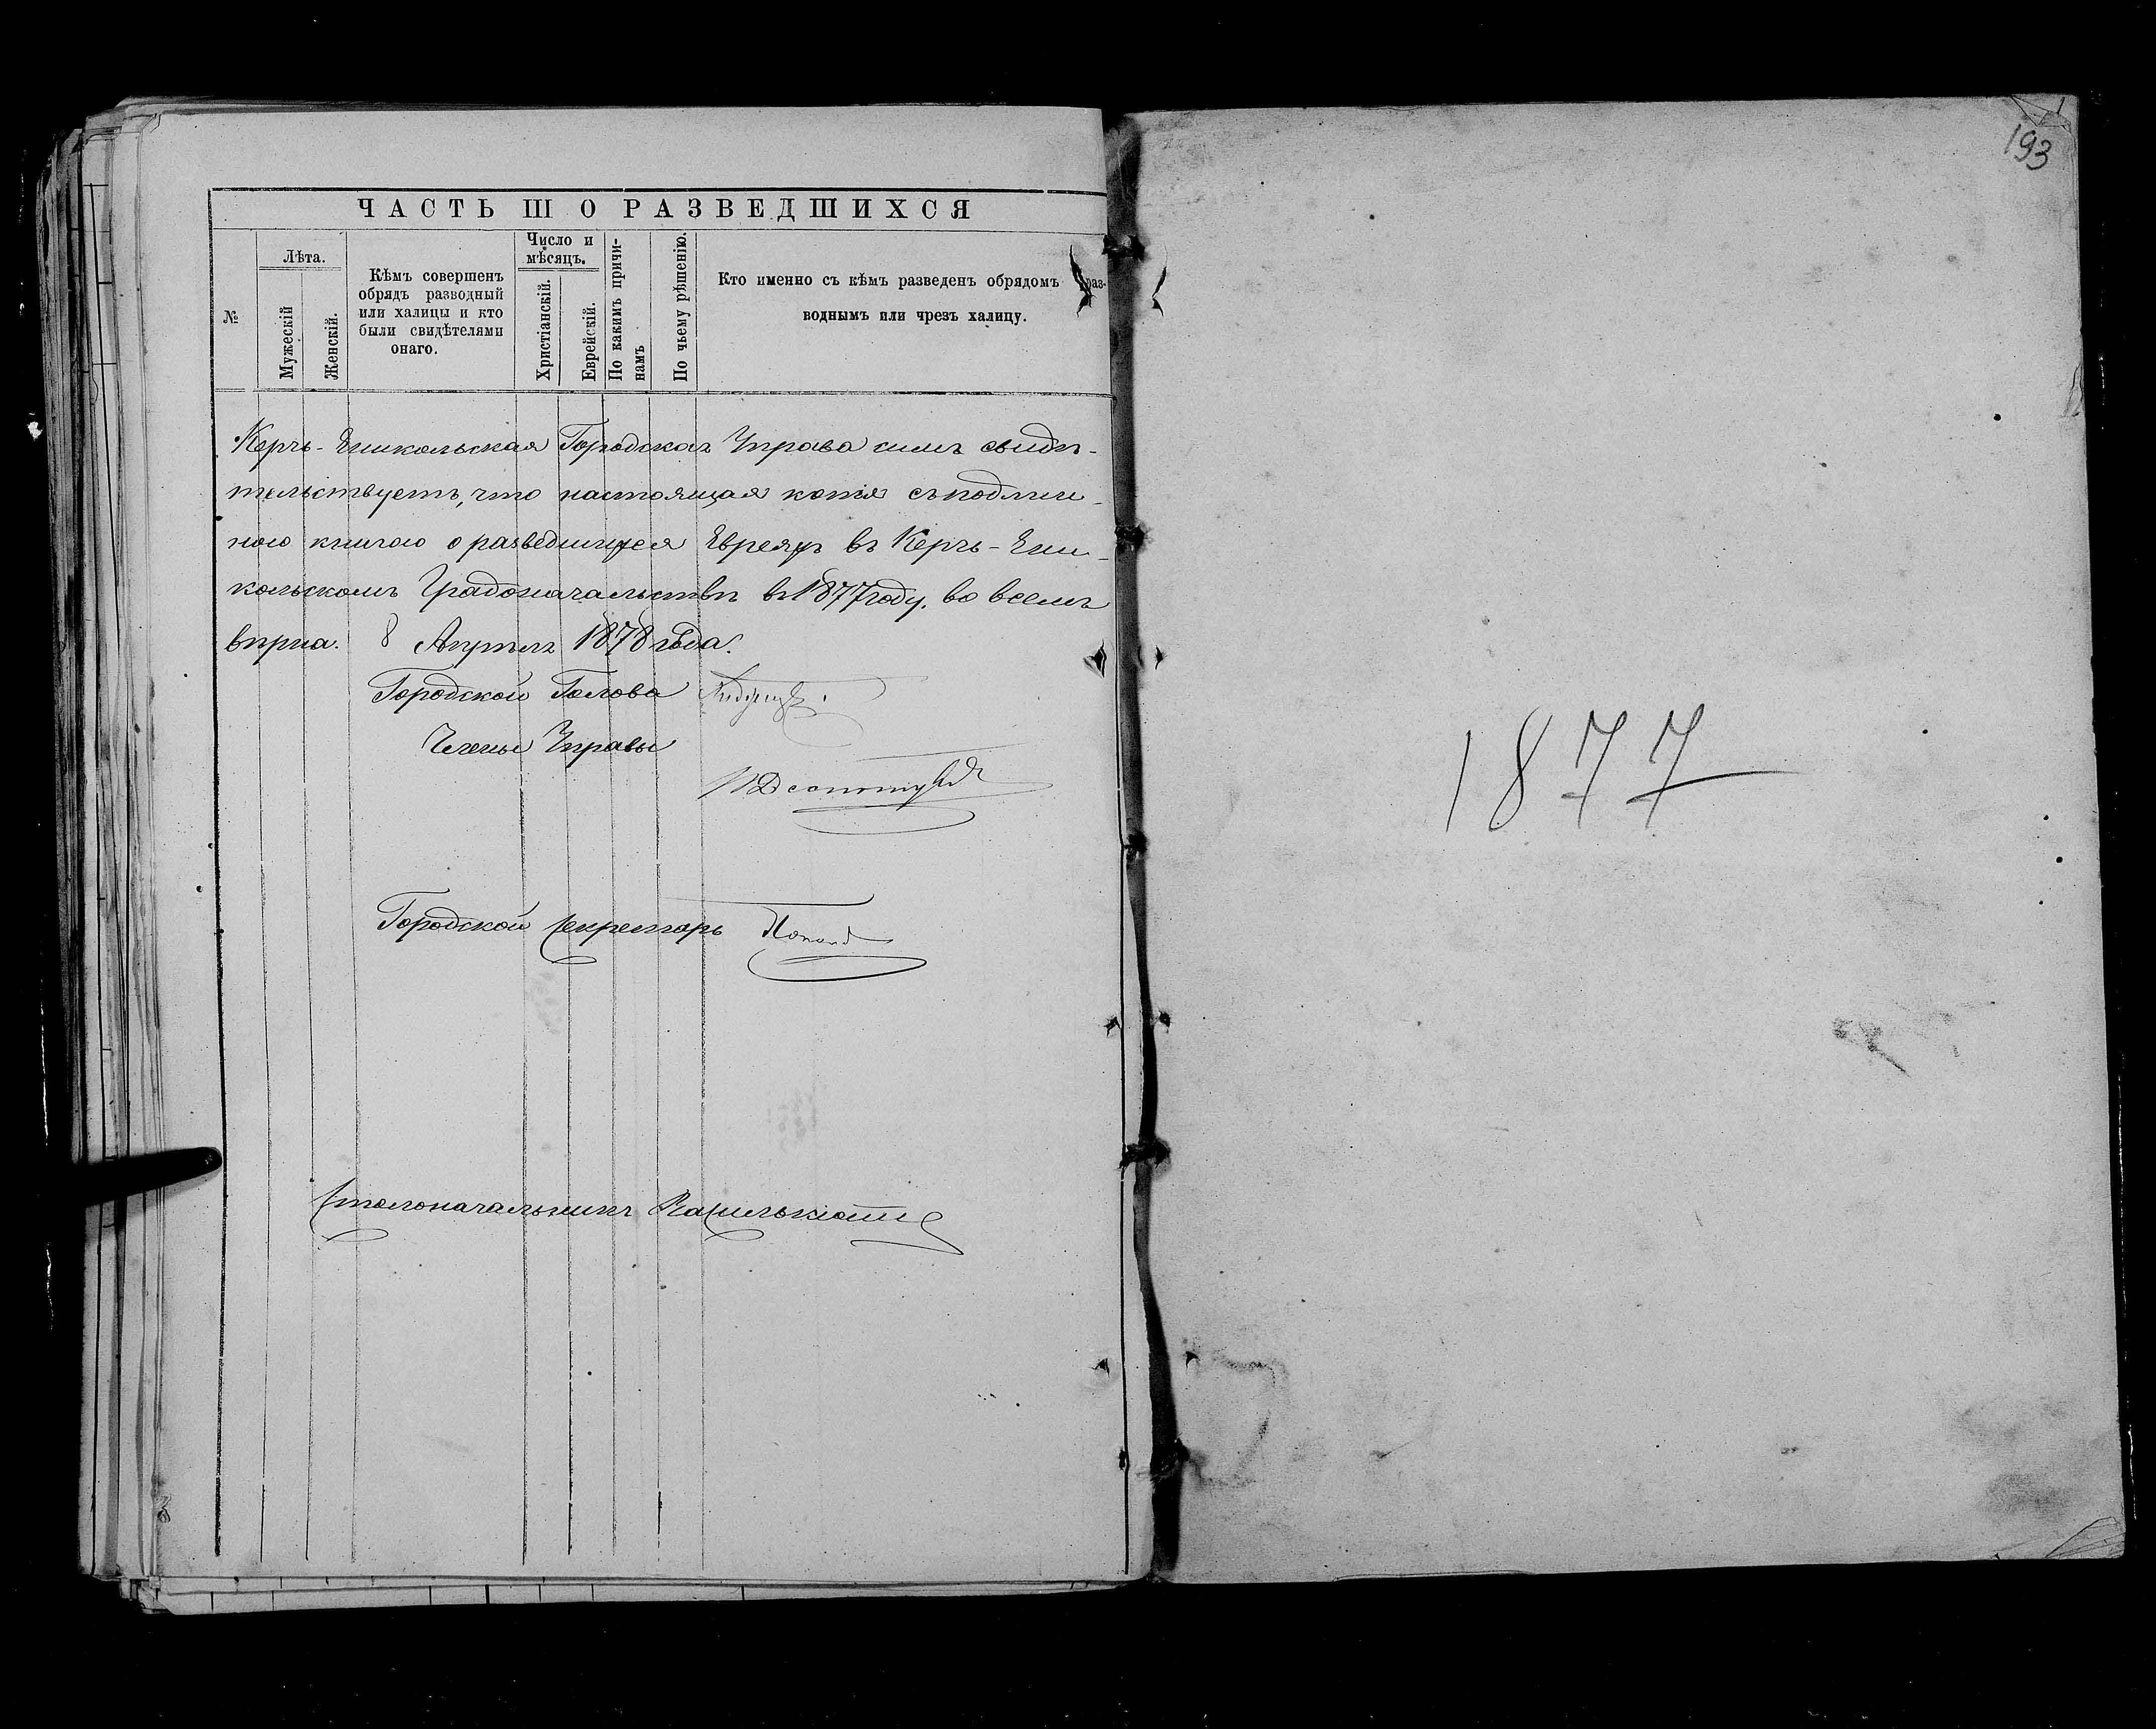 ЧАСТЬ III О РАЗВЕДШИХСЯ
№
Лѣта.
Мужескій
Женскій.
Кѣмъ совершенъ
обрядъ разводный
или халицы и кто
были свидѣтелями
онаго.
Число и
мѣсяцъ.
Христіанскій.
Еврейскій.
По какимъ причи-
намъ
По чьему рѣшенію.
Кто именно съ кѣмъ разведенъ обрядомъ раз-
воднымъ или чрезъ халицу.
Керчь-Еникольская Городская Управа симъ свидѣ-
тельствуетъ, что настоящая копія съ подлин-
ною книгою о разведшихся Евреяхъ въ Керчь-Ени-
кольскомъ Градоначальствѣ въ 1877 году, во всемъ
вѣрна. 8 Апрѣля 1878 года.
Городской Голова
Члены Управы
Городской Секретарь
Столоначальникъ
193
1877